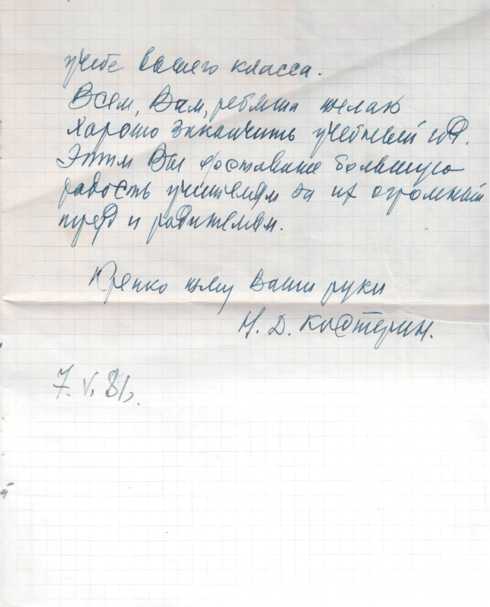 учебе вашего класса.
Всем, Вам, ребята желаю
хорошо закончить учебный год.
Этим Вы доставите большую
радость учителям за их огромный
труд и родителям.
Крепко жму Ваши руки
Н. Д. Костерин.
7.V.81г.